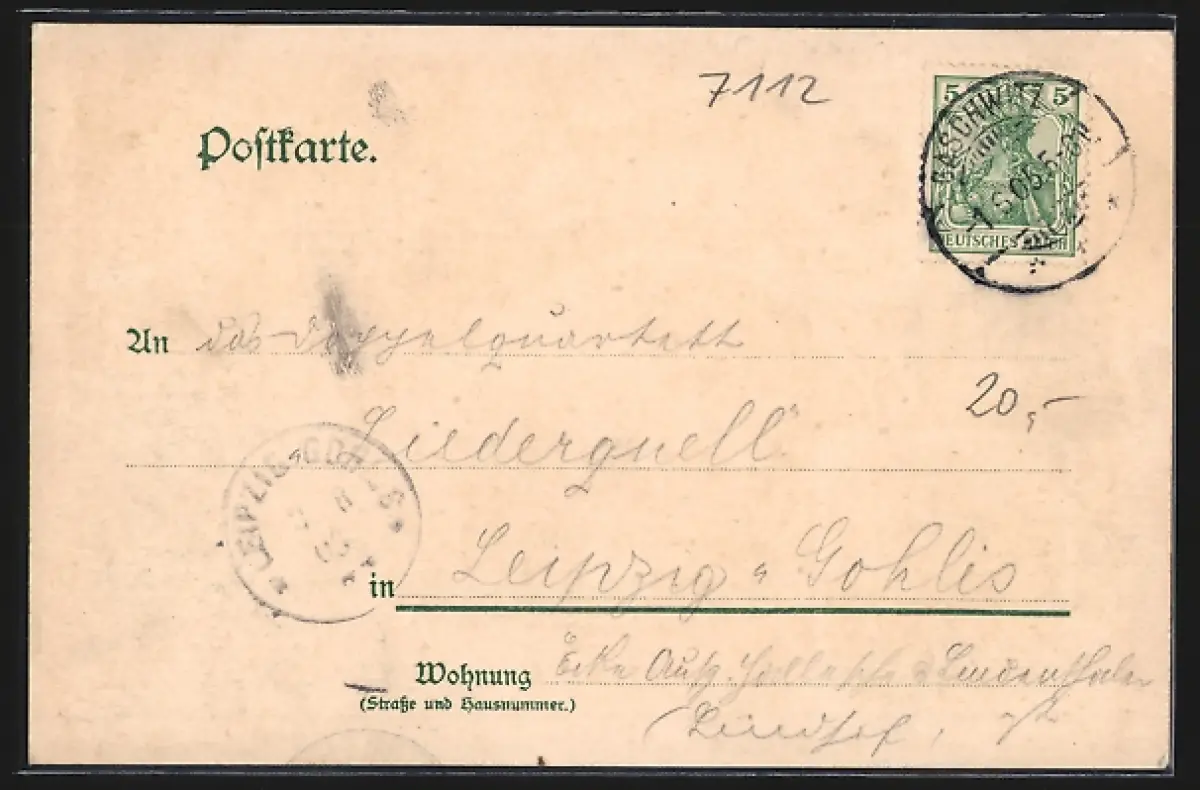 7112
Postkarte.
5 5
GASCHWITZ
DEUTSCHES REICH
An das Doppelquartett
20,-
„Liederquell“
LEIPZIG-GOHLIS
in Leipzig-Gohlis
Wohnung Ecke Lindenthaler
(Straße und Hausnummer.)